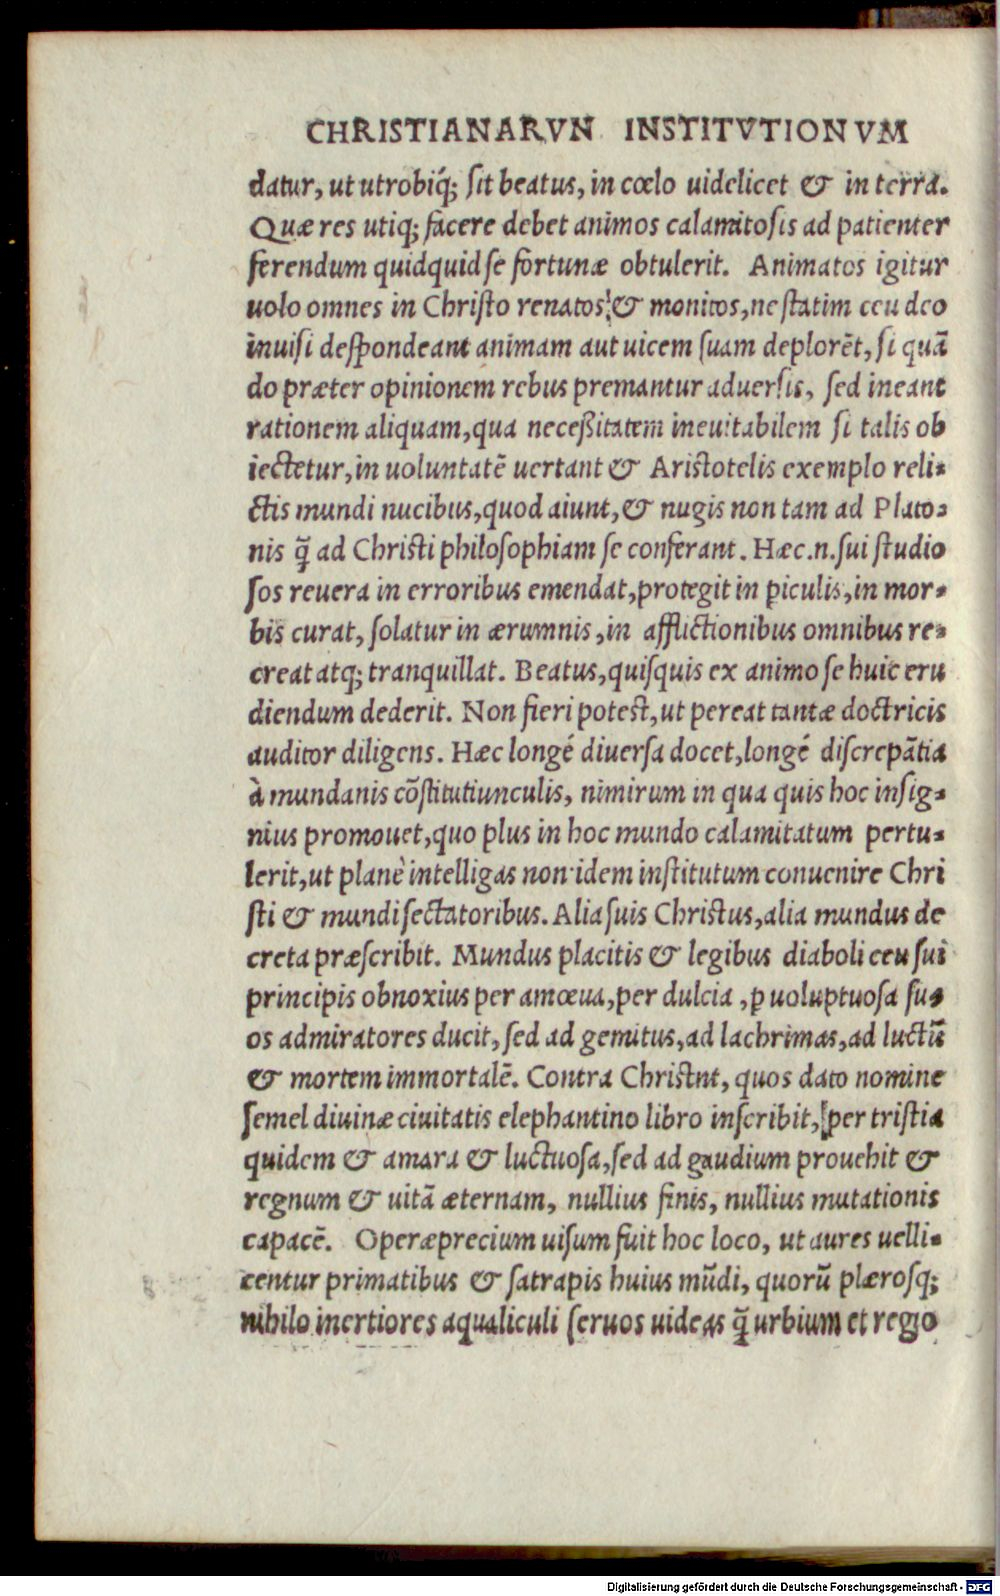 CHRISTIANARVN INSTITVTIONVM
datur, ut utrobiq́; sit beatus, in cœlo uidelicet & in terra.
Quæ res utiq; facere debet animos calamitosis ad patienter
ferendum quidquid se fortunæ obtulerit. Animatos igitur
uolo omnes in Christo renatos, & monitos, ne statim ceu deo
inuisi despondeant animam aut uicem suam deplorēt, si quā
do præter opinionem rebus premantur aduersis, sed ineant
rationem aliquam, qua neceßitatem ineuitabilem si talis ob
iectetur, in uoluntatē uertant & Aristotelis exemplo reli-
ctis mundi nucibus, quod aiunt, & nugis non tam ad Plato-
nis q̄ ad Christi philosophiam se conferant. Hæc.n.sui studio
sos reuera in erroribus emendat, protegit in ꝑiculis, in mor-
bis curat, solatur in ærumnis, in afflictionibus omnibus re-
creat atq; tranquillat. Beatus, quisquis ex animo se huic eru
diendum dederit. Non fieri potest, ut pereat tantæ doctricis
auditor diligens. Hæc longé diuersa docet, longé discrepātia
à mundanis cōstitutiunculis, nimirum in qua quis hoc insig-
nius promouet, quo plus in hoc mundo calamitatum pertu-
lerit, ut planè intelligas non idem institutum conuenire Chri
sti & mundi sectatoribus. Alia suis Christus, alia mundus de
creta præscribit. Mundus placitis & legibus diaboli ceu sui
principis obnoxius per amœua, per dulcia, ꝑ uoluptuosa su-
os admiratores ducit, sed ad gemitus, ad lachrimas, ad luctū
& mortem immortalē. Contra Christnt, quos dato nomine
semel diuinæ ciuitatis elephantino libro inscribit, per tristia
quidem & amara & luctuosa, sed ad gaudium prouehit &
regnum & uitā æternam, nullius finis, nullius mutationis
capacē. Operæprecium uisum fuit hoc loco, ut aures uelli-
centur primatibus & satrapis huius mūdi, quorū plærosq;
nihilo inertiores aqualiculi seruos uideas q̄ urbium et regio
Digitalisierung gefördert durch die Deutsche Forschungsgemeinschaft - DFG